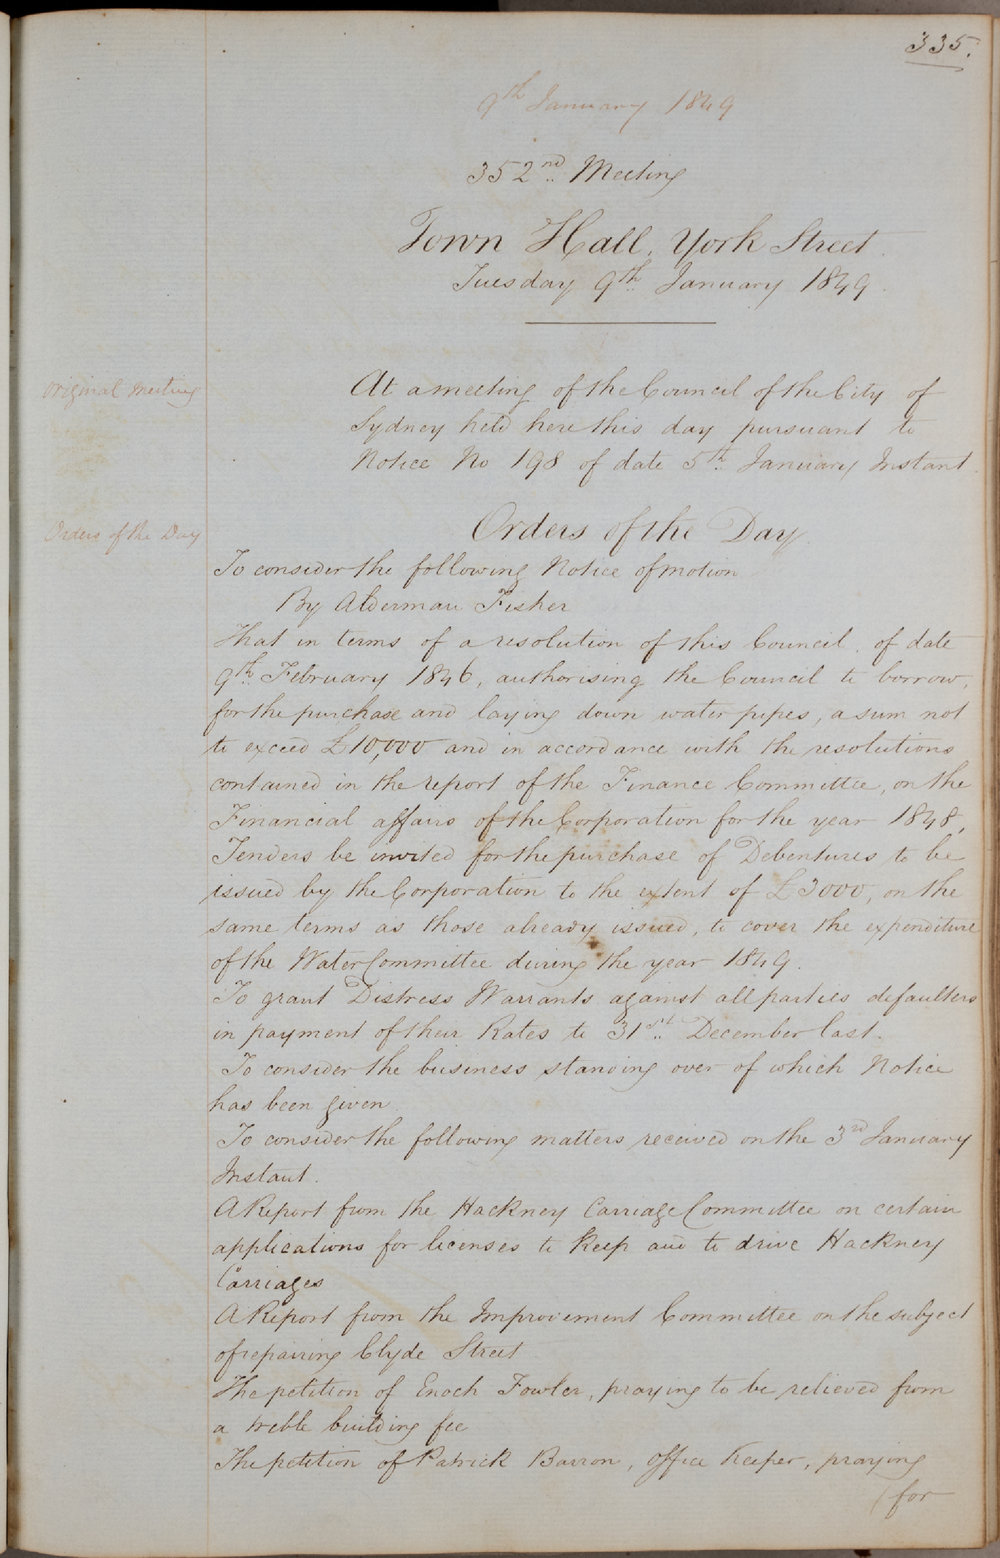 335.
9th January 1849
352nd Meeting
Town Hall, York Street.
Tuesday 9th January 1849.
Original Meeting
At a meeting of the Council of the City of
Sydney held here this day pursuant to
Notice No 198 of date 5th January Instant.
Orders of the Day
Orders of the Day.
To consider the following Notice of motion
By Alderman Fisher
That in terms of a resolution of this Council, of date
9th February 1846, authorising the Council to borrow,
for the purchase and laying down water pipes, a sum not
to exceed £10,000 and in accordance with the resolutions
contained in the report of the Finance Committee, on the
Financial affairs of the Corporation for the year 1848,
Tenders be invited for the purchase of Debentures to be
issued by the Corporation to the extent of £3000, on the
same terms as those already issued, to cover the expenditure
of the Water Committee during the year 1849.
To grant Distress Warrants against all parties defaulters
in payment of their Rates to 31st December last.
To consider the business standing over of which Notice
has been given
To consider the following matters received on the 3rd January
Instant.
A Report from the Hackney Carriage Committee on certain
applications for licenses to keep and to drive Hackney
Carriages
A Report from the Improvement Committee on the subject
of repairing Clyde Street
The petition of Enoch Fowler, praying to be relieved from
a treble building fee
The petition of Patrick Barron, Office Keeper, praying
(for